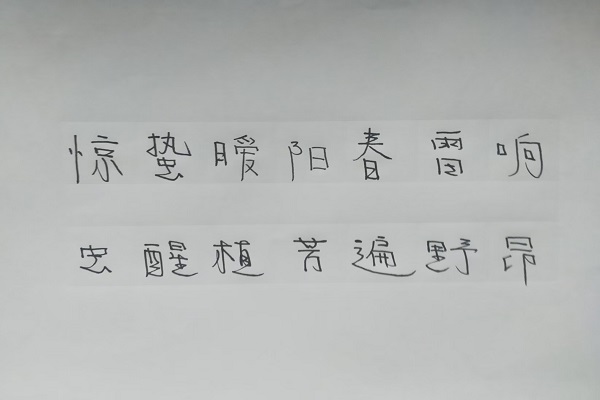 惊蛰暖阳春雷响
虫醒植芳遍野昂